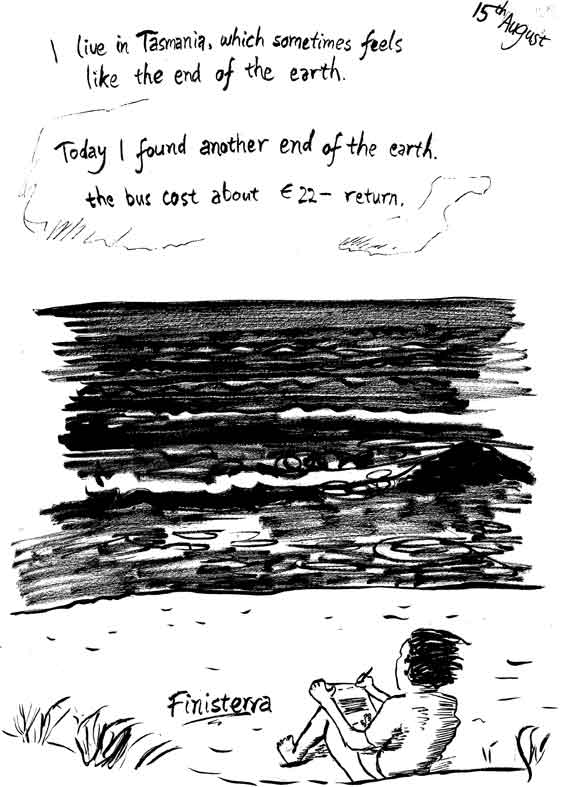 15th August
I live in Tasmania, which sometimes feels
like the end of the earth.
Today I found another end of the earth.
the bus cost about €22- return.
Finisterra